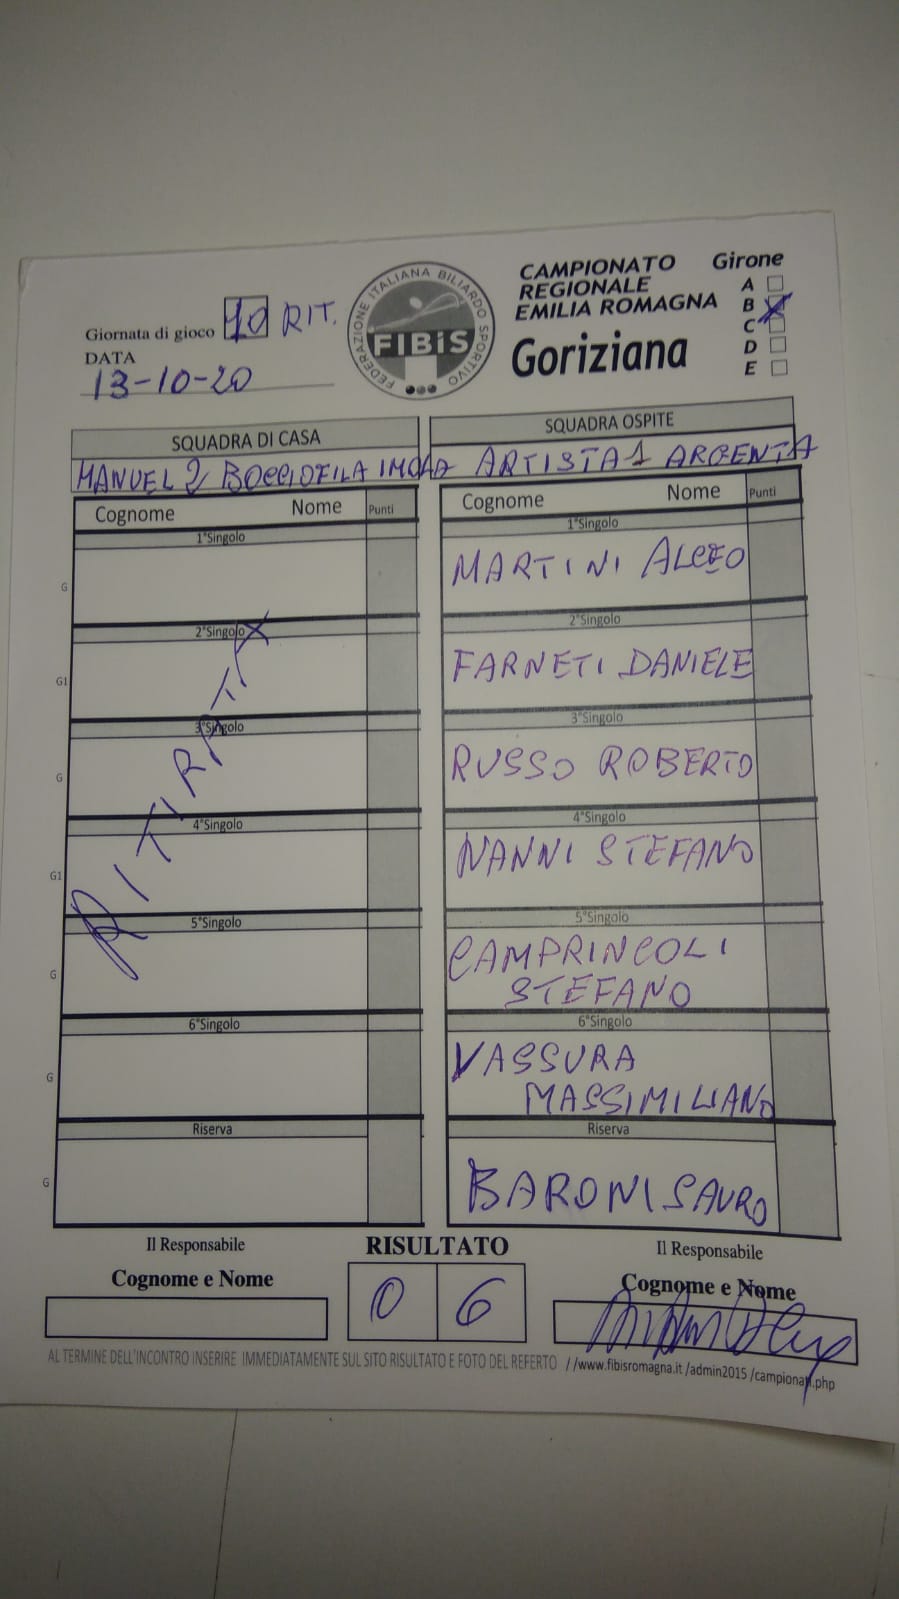 CAMPIONATO
REGIONALE
EMILIA ROMAGNA
Goriziana
Girone
A
B
C
D
E
FEDERAZIONE ITALIANA BILIARDO SPORTIVO
FIBiS
Giornata di gioco 10 RIT.
DATA
13-10-20
SQUADRA DI CASA
MANUEL 2 BOCCIOFILA IMOLA
Cognome Nome Punti
1°Singolo
G
2°Singolo
G1
3°Singolo
G
4°Singolo
G1
5°Singolo
G
6°Singolo
G
Riserva
G
RITIRATA
SQUADRA OSPITE
ARTISTA 1 ARGENTA
Cognome Nome Punti
1°Singolo
MARTINI ALCEO
2°Singolo
FARNETI DANIELE
3°Singolo
RUSSO ROBERTO
4°Singolo
NANNI STEFANO
5°Singolo
CAMPRINCOLI
STEFANO
6°Singolo
VASSURA
MASSIMILIANO
Riserva
BARONI SAURO
Il Responsabile
Cognome e Nome
RISULTATO
0 6
Il Responsabile
Cognome e Nome
AL TERMINE DELL'INCONTRO INSERIRE IMMEDIATAMENTE SUL SITO RISULTATO E FOTO DEL REFERTO //www.fibisromagna.it /admin2015 /campionati.php